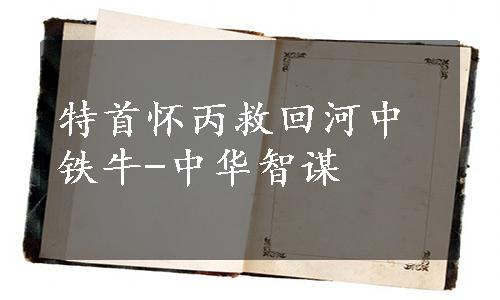 特首怀丙救回河中
铁牛-中华智谋